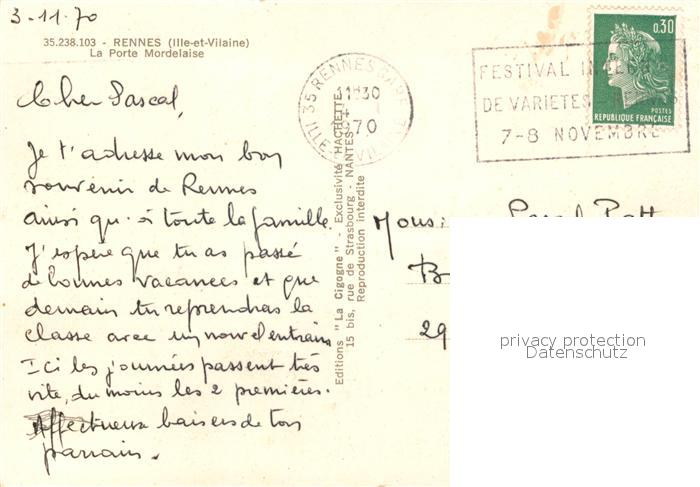 3-11-70
35.238.103 - RENNES (Ille-et-Vilaine)
La Porte Mordelaise
Cher Pascal,
Je t'adresse mon bon
souvenir de Rennes
ainsi qu'à toute la famille.
J'espère que tu as passé
de bonnes vacances et que
demain tu reprendras la
classe avec un nouvel entrain
Ici les journées passent très
vite, du moins les 2 premières.
Affectueux baisers de ton
parrain.
Editions "La Cigogne" - Exclusivité HACHETTE
15 bis, rue de Strasbourg - NANTES
Reproduction interdite
35 RENNES GARE
11H30
4
1970
ILLE-ET-VILAINE
FESTIVAL
DE VARIETES
7-8 NOVEMBRE
0,30
POSTES
REPUBLIQUE FRANÇAISE
Mons
B
29
privacy protection
Datenschutz